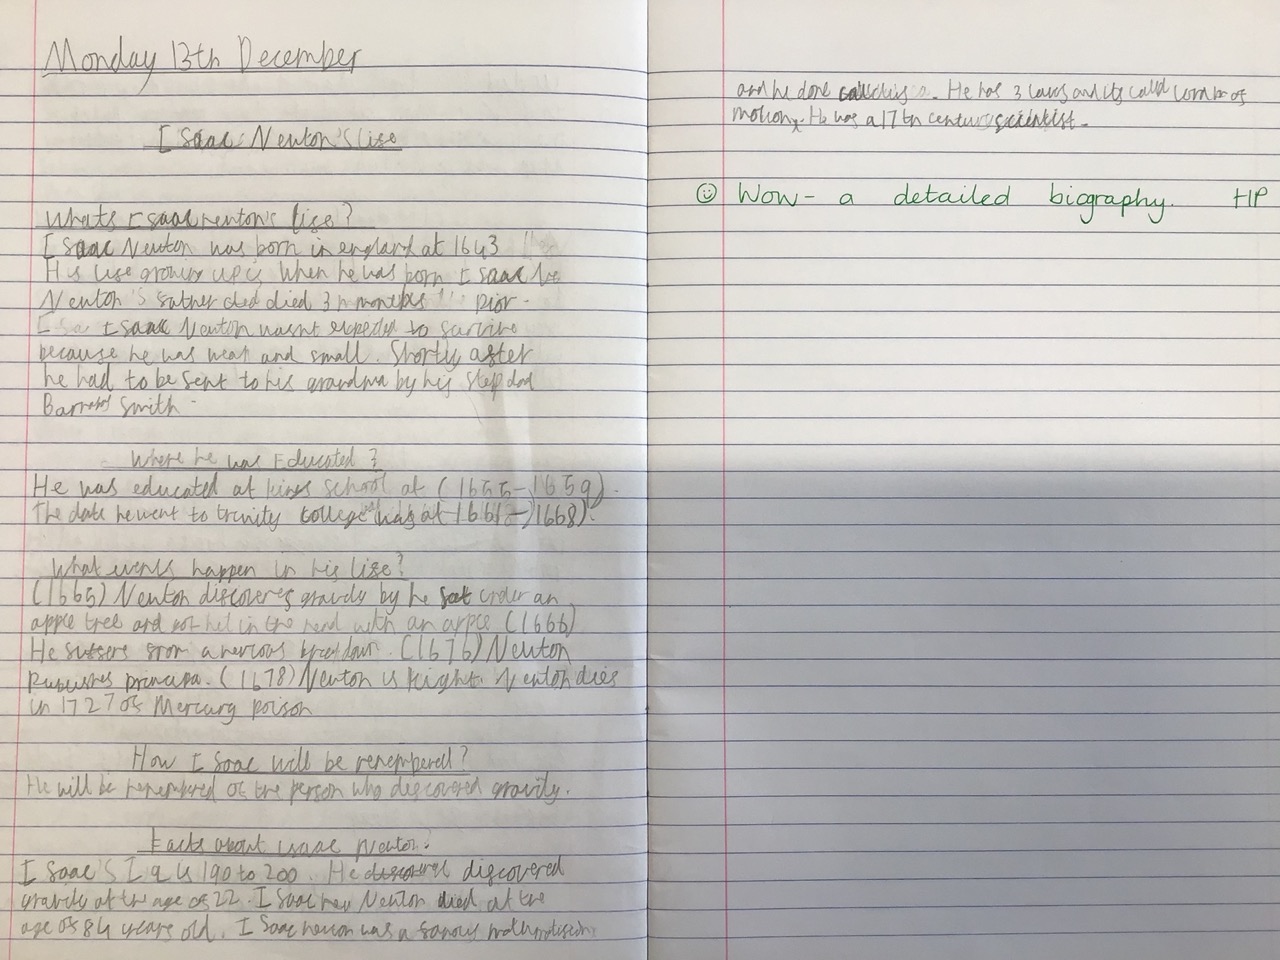 Monday 13th December
I Saac Newton's lise
Whats I saac newton's lise?
I Saac Newton was born in england at 1643
His lise growing up is when he was born I saac
Newton's sather died 3 months pior.
I Saac Newton wasnt expected to survive
because he was weak and small. Shortly aster
he had to be sent to his grandma by his step dad
Barnabas Smith.
Where he was Educated?
He was educated at kings school at (1655-1659).
The date he went to trinity college was at 1661-1668).
What events happen in his lise?
(1665) Newton discoveres gravity by he sat under an
apple tree and got hit in the head with an apple (1666)
He sussers srom a nervous breakdown. (1676) Newton
Publishes principa. (1678) Newton is Kight. Newton dies
in 1727 os Mercury Poison
How I Saac will be remembered?
He will be remembered as the person who discovered gravity.
Facts about isaac Newton?
I Saac's I q is 190 to 200. He discovered
gravity at the age os 22. I Saac Newton died at the
age os 84 years old. I Saac newton was a samous
and he done. He has 3 laws and its calld
motion. He was a 17th century scientist.
Wow - a detailed biography. HP